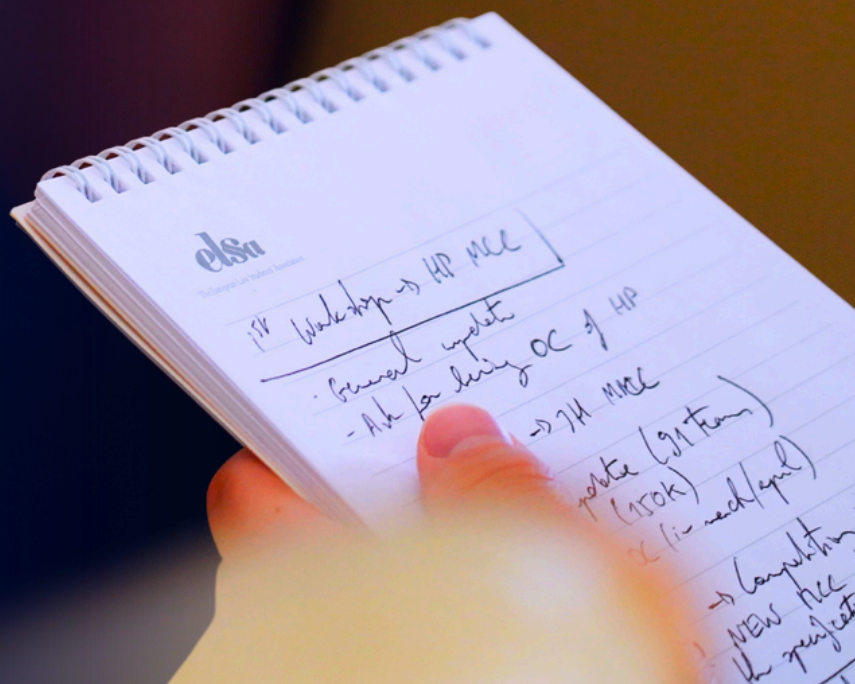 elsa
The European Law Students' Association
1st Workshop -> HP MCC
· General update
- Ask for being OC of HP
-> JH MCC
update (91 teams)
(150K)
OC (in march/april)
-> Competition
NEW MCC
the specificati